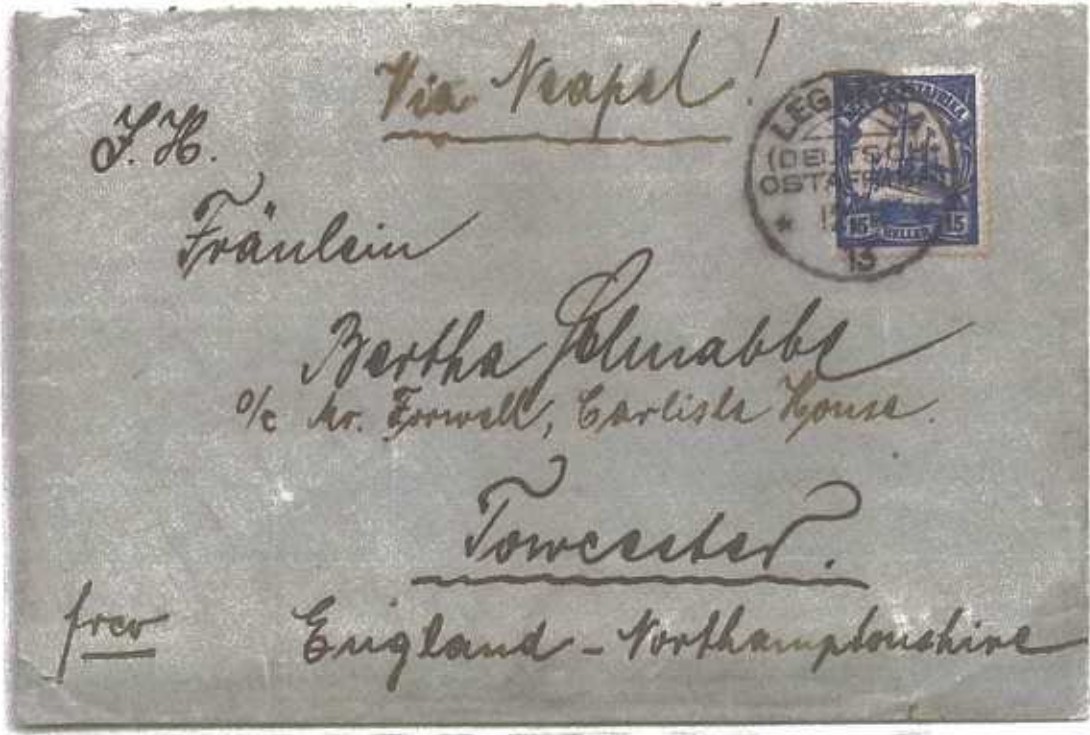 Via Neapel!
J. H.
Fräulein
Bertha Schnabbe
o/c Mr. Forwell, Carlisle House.
Towcester.
England - Northamptonshire
frco
(DEUTSCH-
OSTAFRIKA)
13
15 HELLER 15